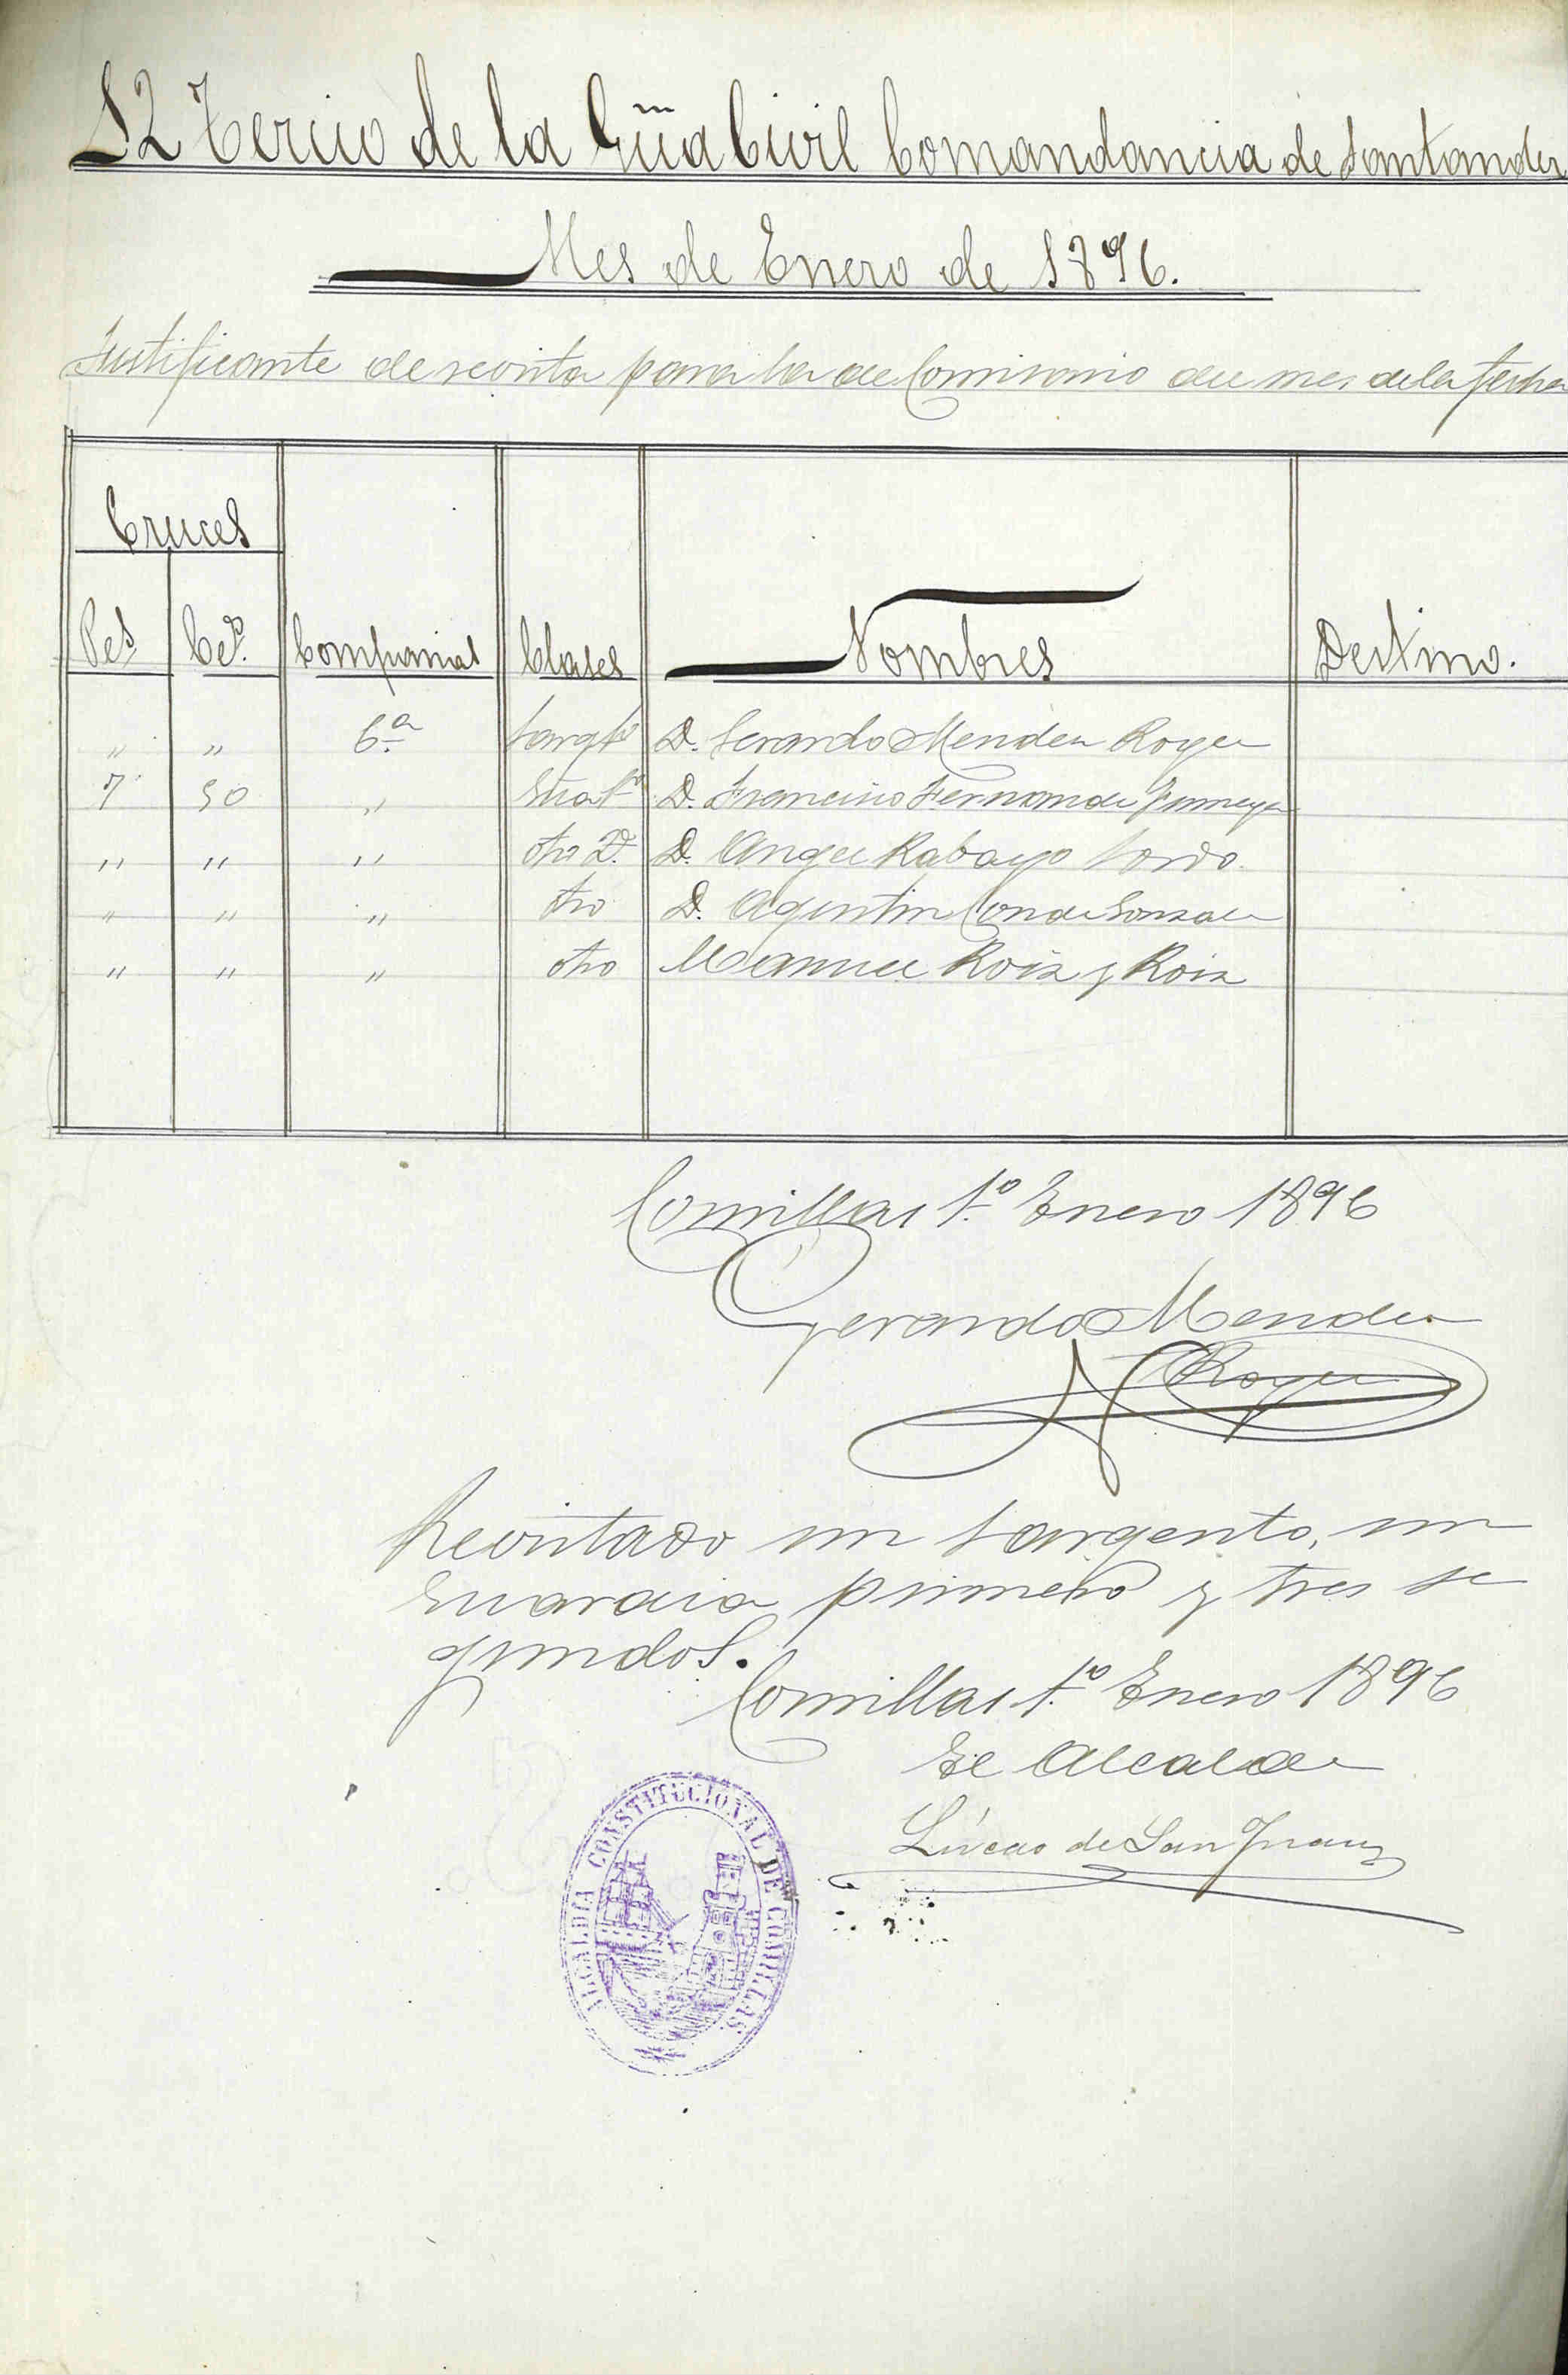 12 Tercio de la Gũa Civil Comandancia de Santander
Mes de Enero de 1896.
Justificante de revista para la de Comisario del mes de la fecha
Cruces
Pes. Ces. Compañias Clases Nombres Destino.
" " 6.ª Sargto D. Gerardo Mendez Royer
7 50 " D. Francisco Fernandez
" " " otro 2.º D. Angel Rabago
" " " otro D. Agustin Conde Gonzalez
" " " otro Manuel Roiz y Roiz
Comillas 1.º Enero 1896
Gerardo Mendez
Royer
Revistado un Sargento, un
Guardia primero y tres se
gundos.
Comillas 1.º Enero 1896
El Alcalde
Lúcas de San Juan
ALCALDIA CONSTITUCIONAL DE COMILLAS